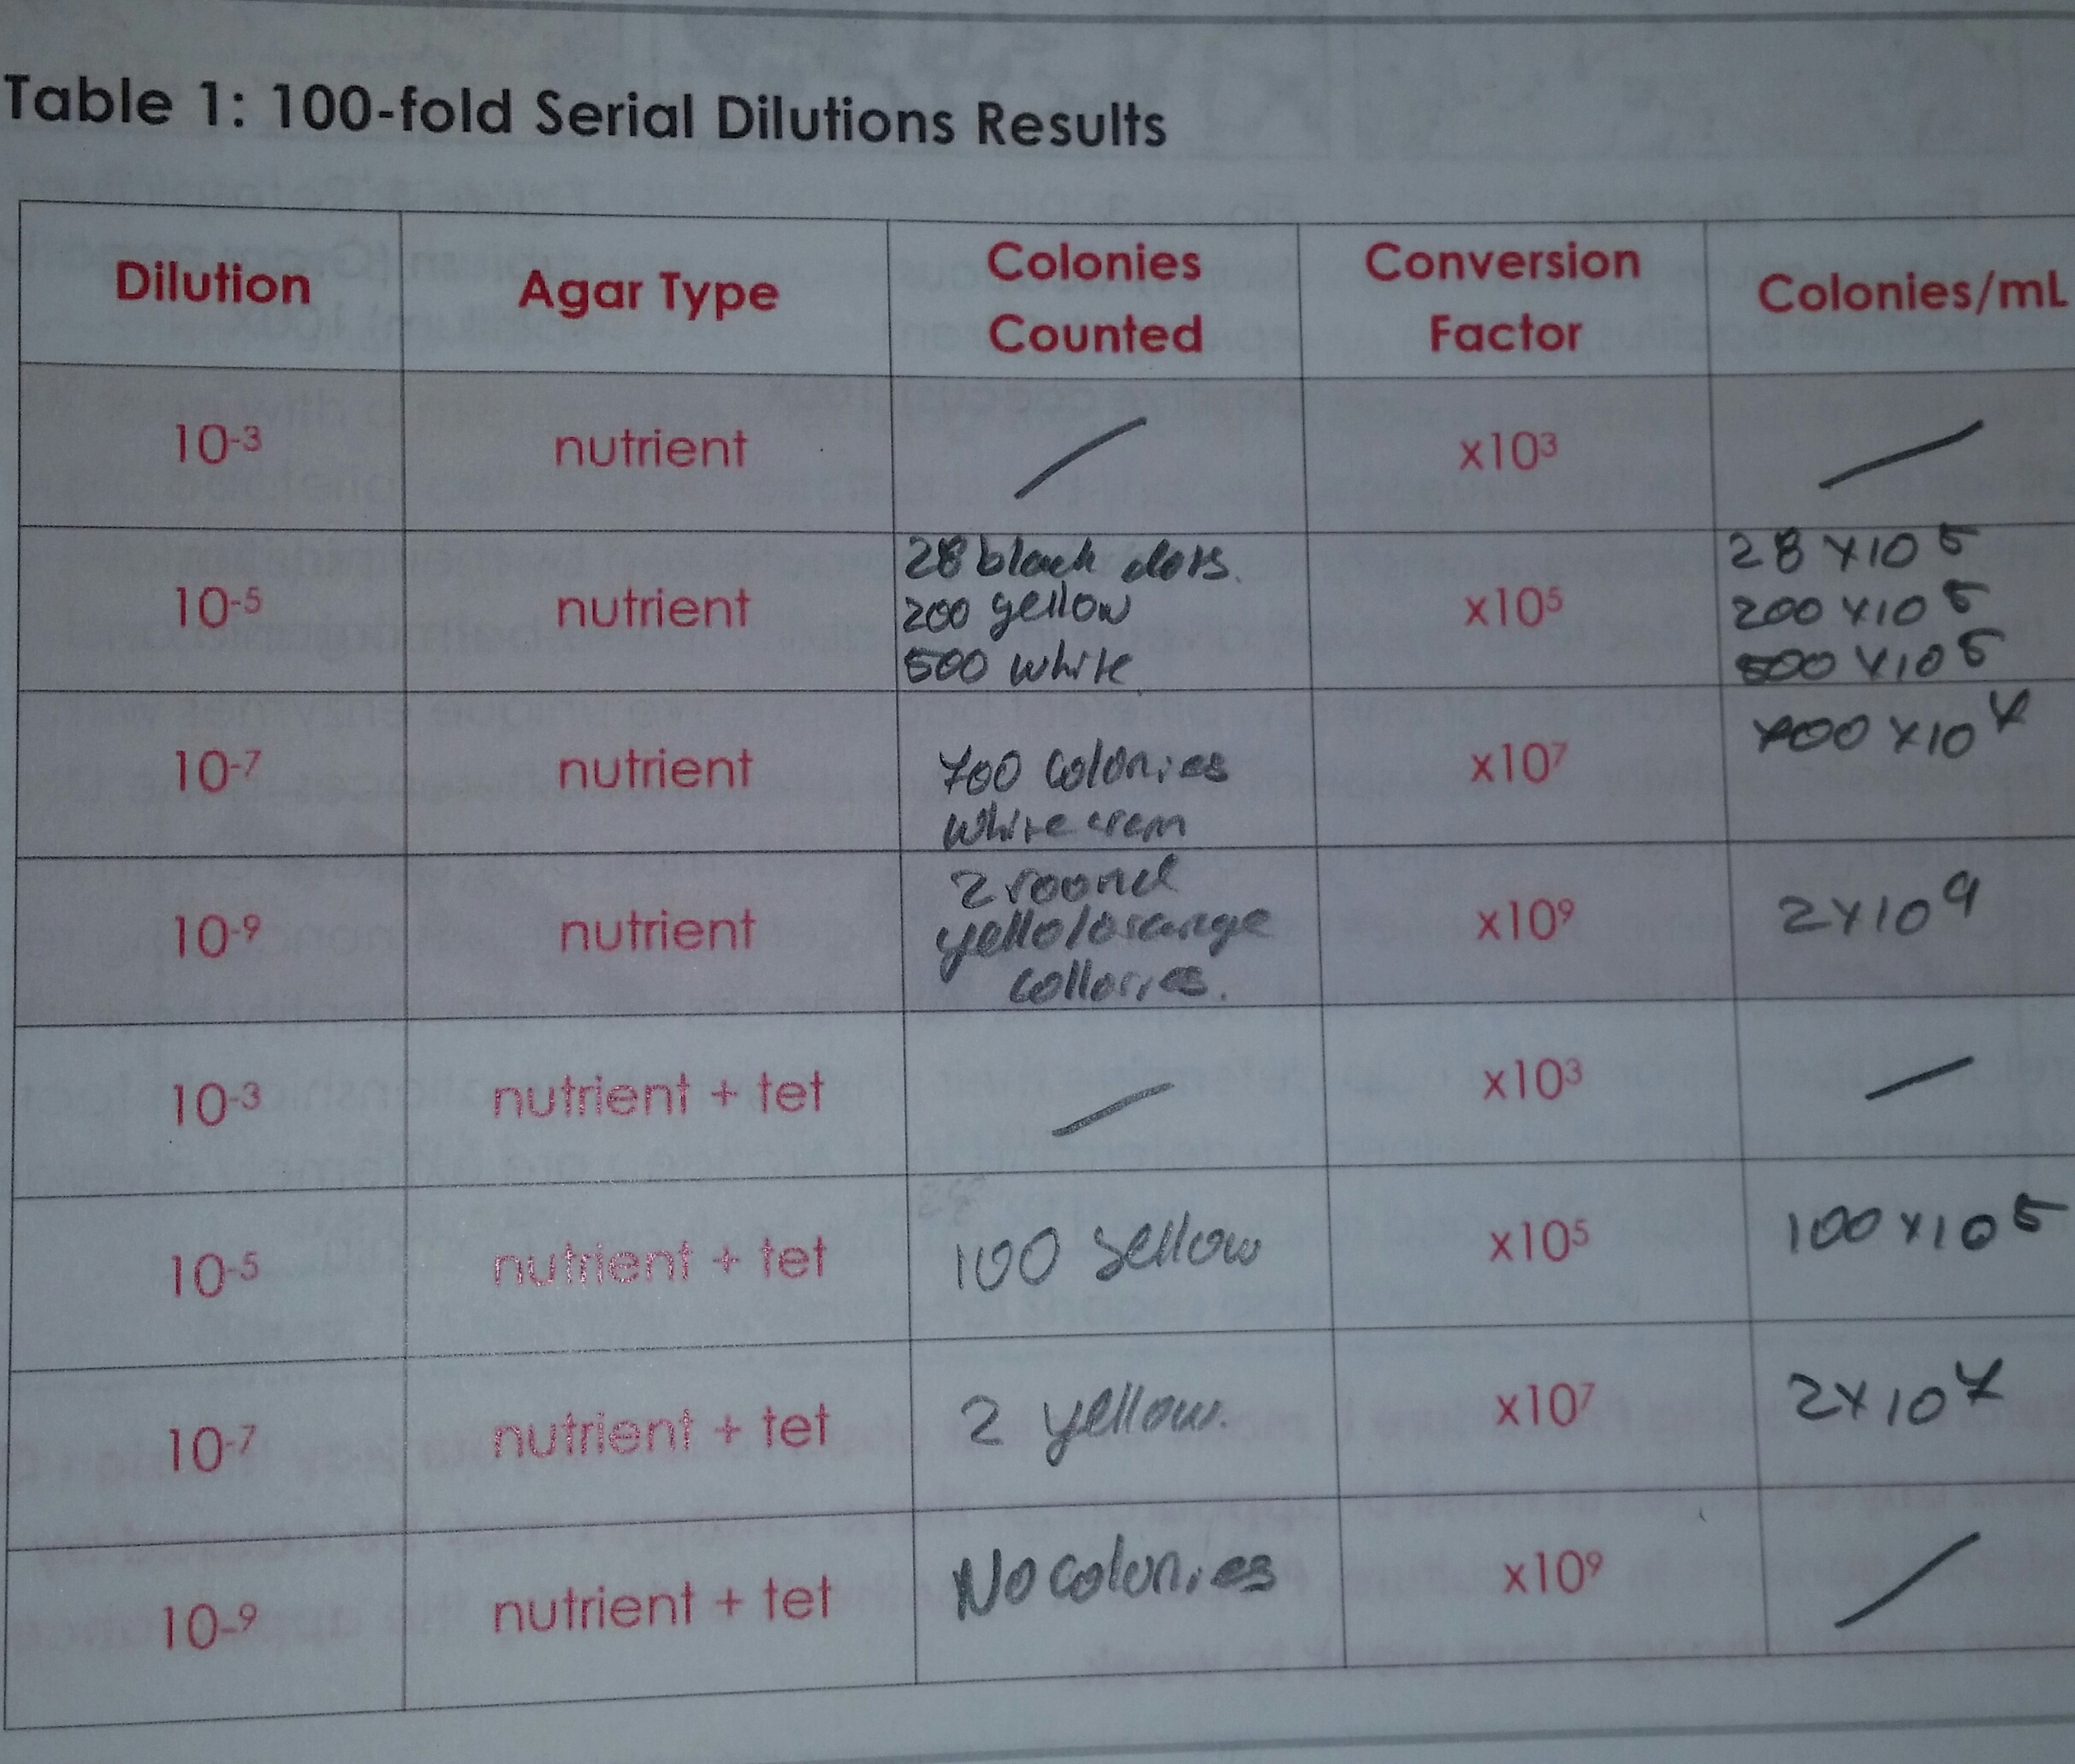 Table 1: 100-fold Serial Dilutions Results
Dilution Agar Type Colonies Counted Conversion Factor Colonies/mL
10-3 nutrient / x10³ /
10-5 nutrient 28 black dots. x10⁵ 28 x10⁵
200 yellow 200 x10⁵
500 white 500 x10⁵
10-7 nutrient 700 colonies x10⁷ 700 x10⁷
white crem
10-9 nutrient 2 roond x10⁹ 2x10⁹
yello/orange
collonies.
10-3 nutrient + tet / x10³ /
10-5 nutrient + tet 100 yellow x10⁵ 100 x10⁵
10-7 nutrient + tet 2 yellow. x10⁷ 2x10⁷
10-9 nutrient + tet No colonies x10⁹ /